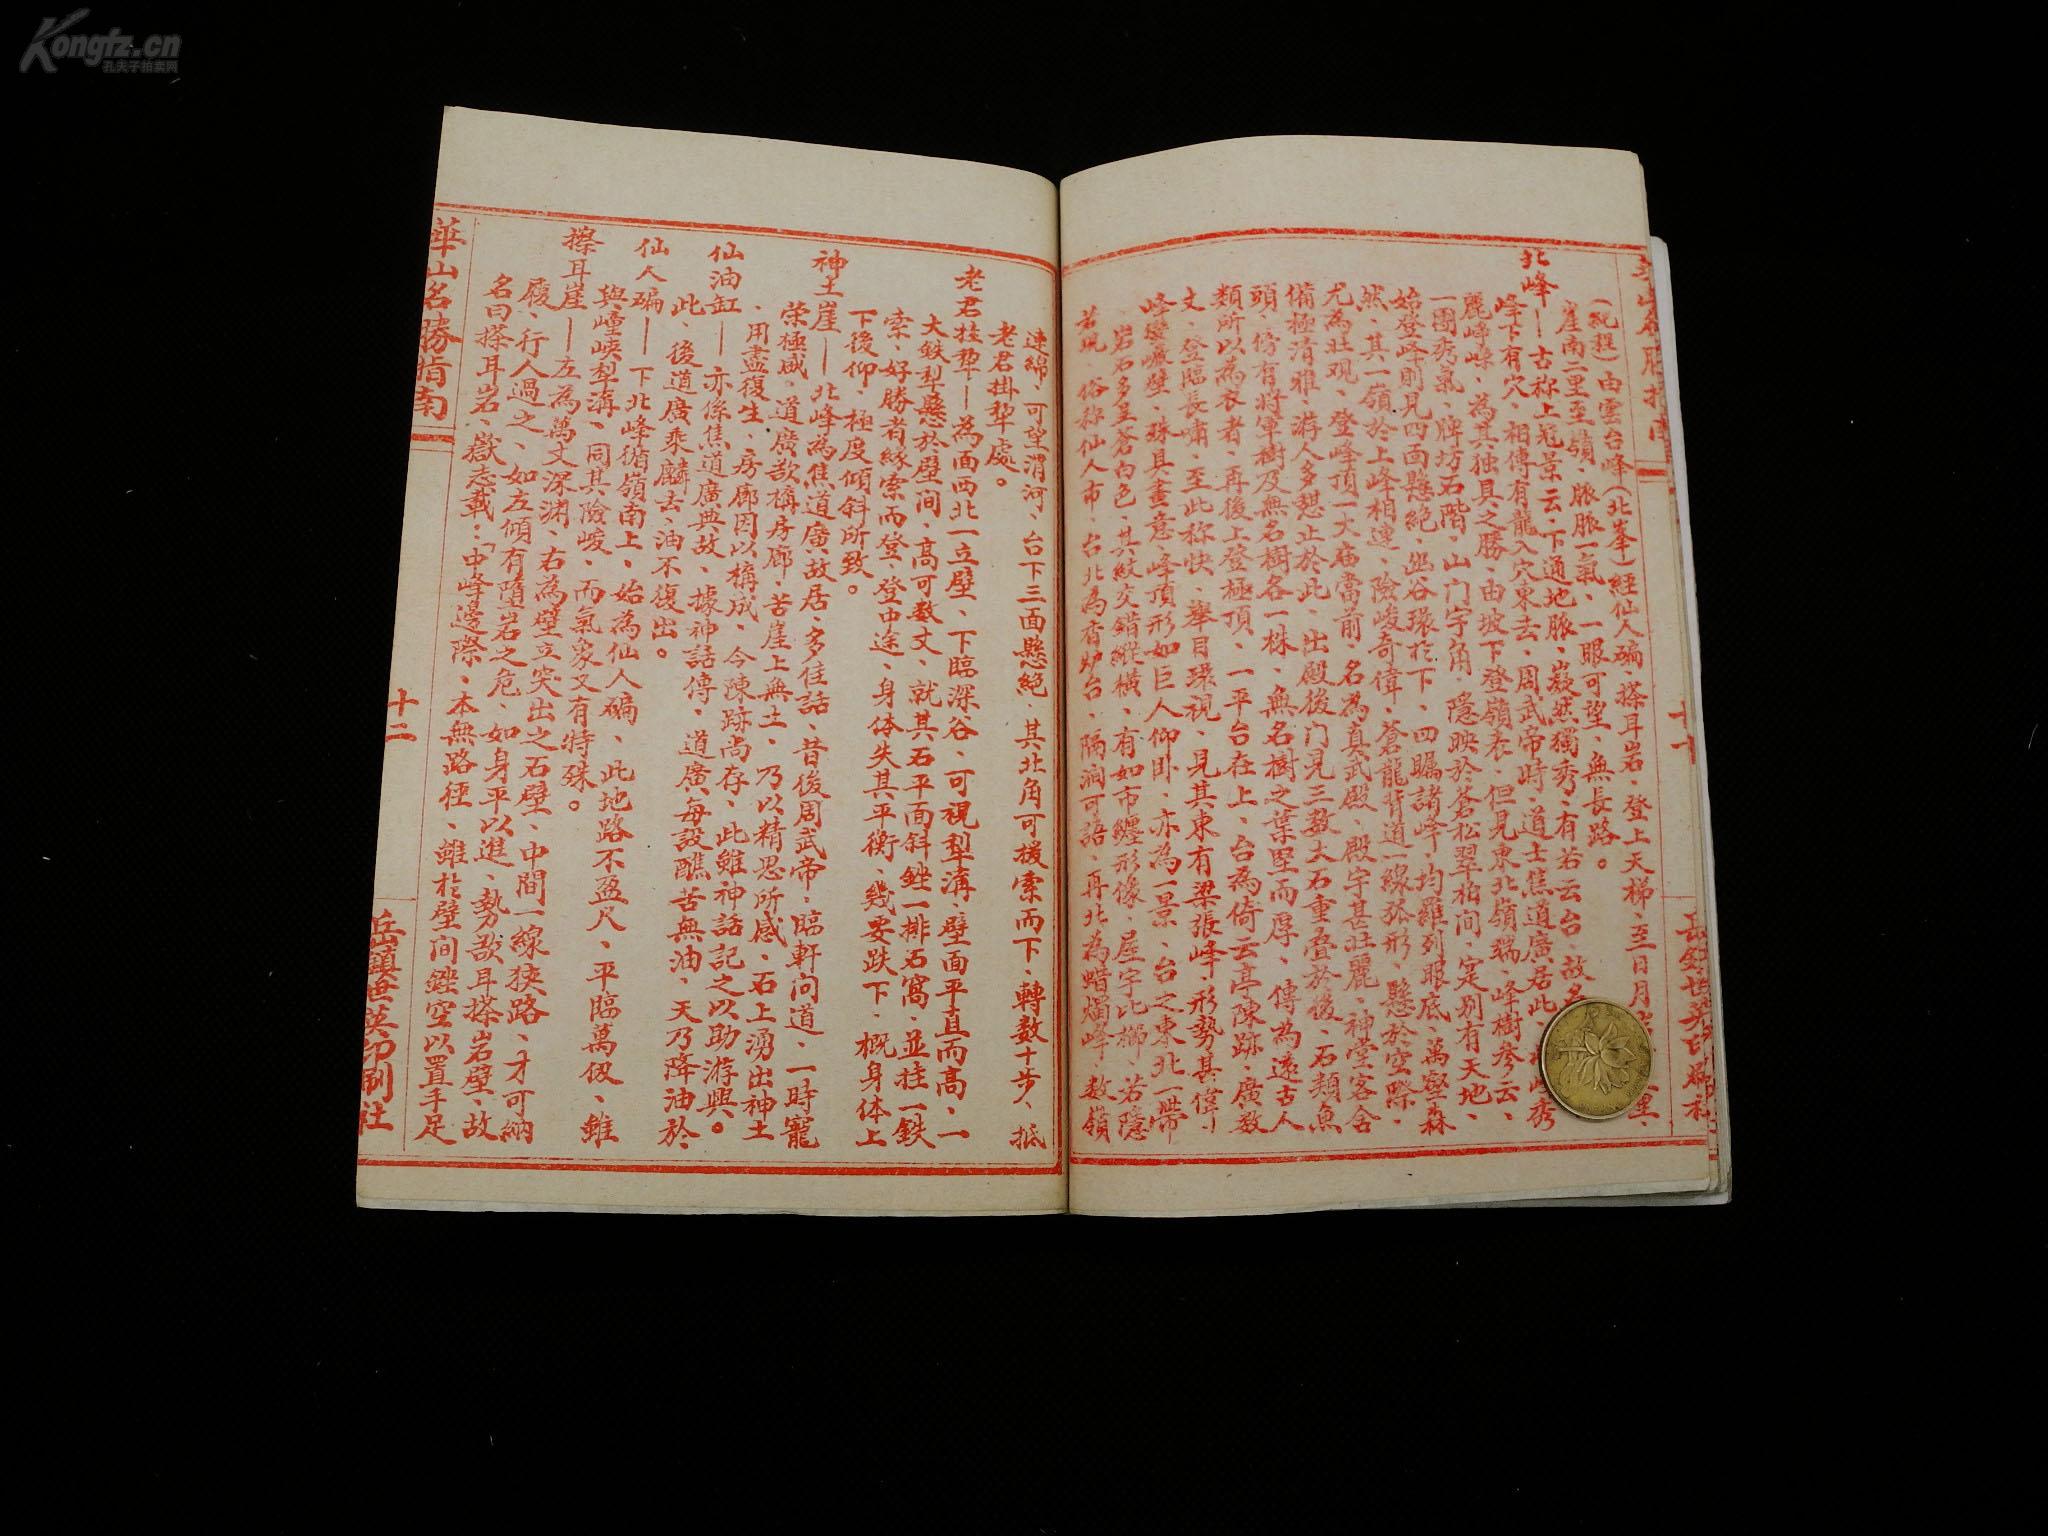 Kongfz.cn
孔夫子拍卖网
北峰
(説程)由雲台峰(北峯)經仙人碥、搽耳岩、登上天梯、至日月
崖南二里至嶺、脈脈一氣、一眼可望、無長路。
北峰——古称上冠景云、下通地脈、嶷然獨秀、有若云台、故名
峰下有穴、相傳有龍入穴東去、周武帝時、道士焦道廣居此、峰秀
麗崢嶸、為其独具之勝、由坡下登嶺表、但見東北嶺端、峰樹参云、
一團秀氣、牌坊石階、山门字角、隱映於蒼松翠柏间、定别有天地、
始登峰則見四面懸絕、幽谷環於下、四瞩諸峰、均羅列眼底、萬壑森
然、其一嶺於上峰相連、險峻奇偉、蒼龍背道一線弧形、懸於空際、
尤為壮观、登峰頂一大庙當前、名為真武殿、殿宇甚壮麗、神堂客舍
備極清雅、游人多憩止於此、出殿後门見三数大石重叠於後、石類魚
頭、傍有将軍樹及無名樹各一株、無名樹之葉堅而厚、傳為遠古人
類所以為衣者、再後上登極頂、一平台在上、台為倚云亭陳跡、廣数
丈、登臨長嘯、至此称快、舉目環視、見其東有梁張峰、形勢甚偉、
峰巒巉壁、殊具畫意、峰頂形如巨人仰卧、亦為一景、台之東北一带
岩石多呈蒼白色、其紋交錯縱横、有如市纏形像、屋宇比櫛、若隱
若現、俗称仙人市、台北為香炉台、隔涧可語、再北為蜡燭峰、数嶺
連綿、可望渭河、台下三面懸絕、其北角可援索而下、轉数十步、抵
老君掛犁處。
老君挂犂——為面西北一立壁、下臨深谷、可視犁溝、壁面平直而高、一
大鉄犁懸於壁间、高可数丈、就其石平面斜銼一排石窩、並挂一鉄
索、好勝者緣索而登、登中途、身体失其平衡、幾要跌下、概身体上
下後仰、極度傾斜所致。
神土崖——北峰為焦道廣故居、多佳話、昔後周武帝、臨軒问道、一時寵
荣極咸、道廣欲構房廊、苦崖上無土、乃以精思所感、石上湧出神土
、用盡復生、房廊因以構成、今陳跡尚存、此雖神話記之以助游興。
仙油缸——亦係焦道廣典故、據神話傳、道廣每設醮苦無油、天乃降油於
此、後道廣乘麟去、油不復出。
仙人碥——下北峰循嶺南上、始為仙人碥、此地路不盈尺、平臨萬仭、雖
與㠉峽犁溝、同其險峻、而氣象又有特殊。
擦耳崖——左為萬丈深渊、右為壁立突出之石壁、中間一線狹路、才可納
履、行人過之、如左傾有墮岩之危、如身平以進、勢欲耳搽岩壁、故
名曰搽耳岩、嶽志載:「中峰邊際、本無路徑、雖於壁间銼空以置手足
華山名勝指南
十二
岳鎮世英印刷社
十一